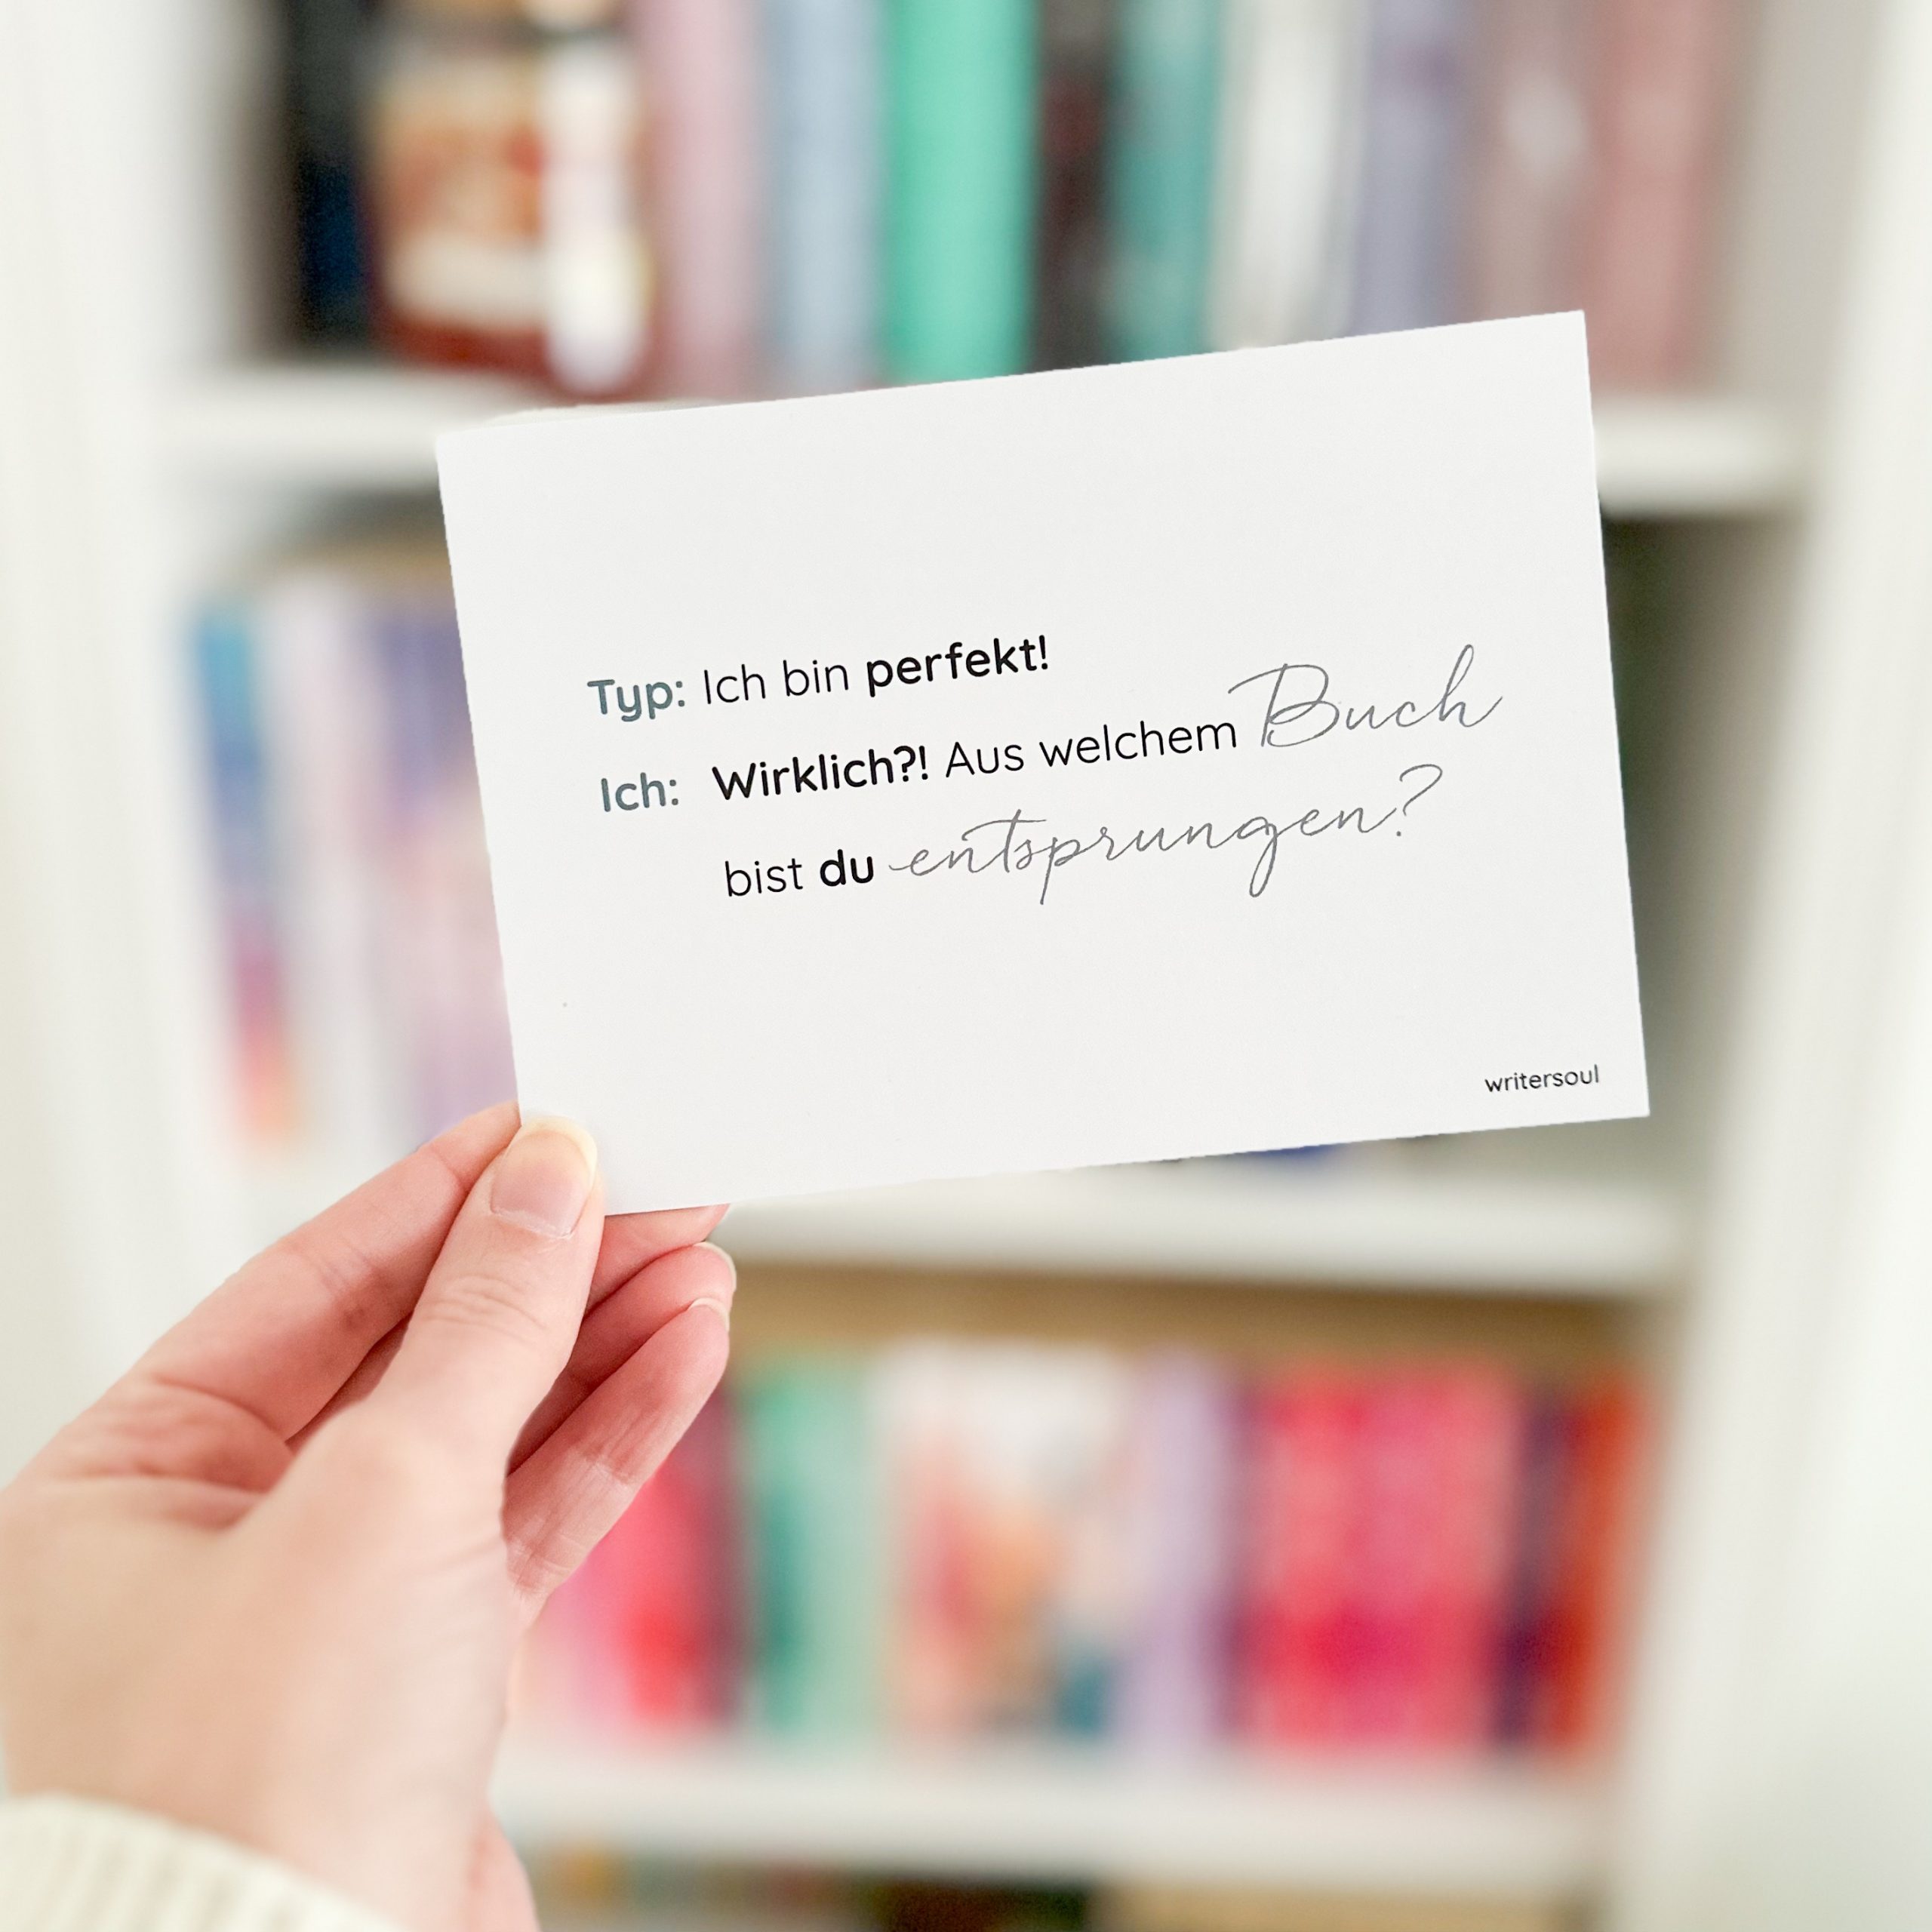 Typ: Ich bin perfekt!
Ich: Wirklich?! Aus welchem Buch
bist du entsprungen?
writersoul